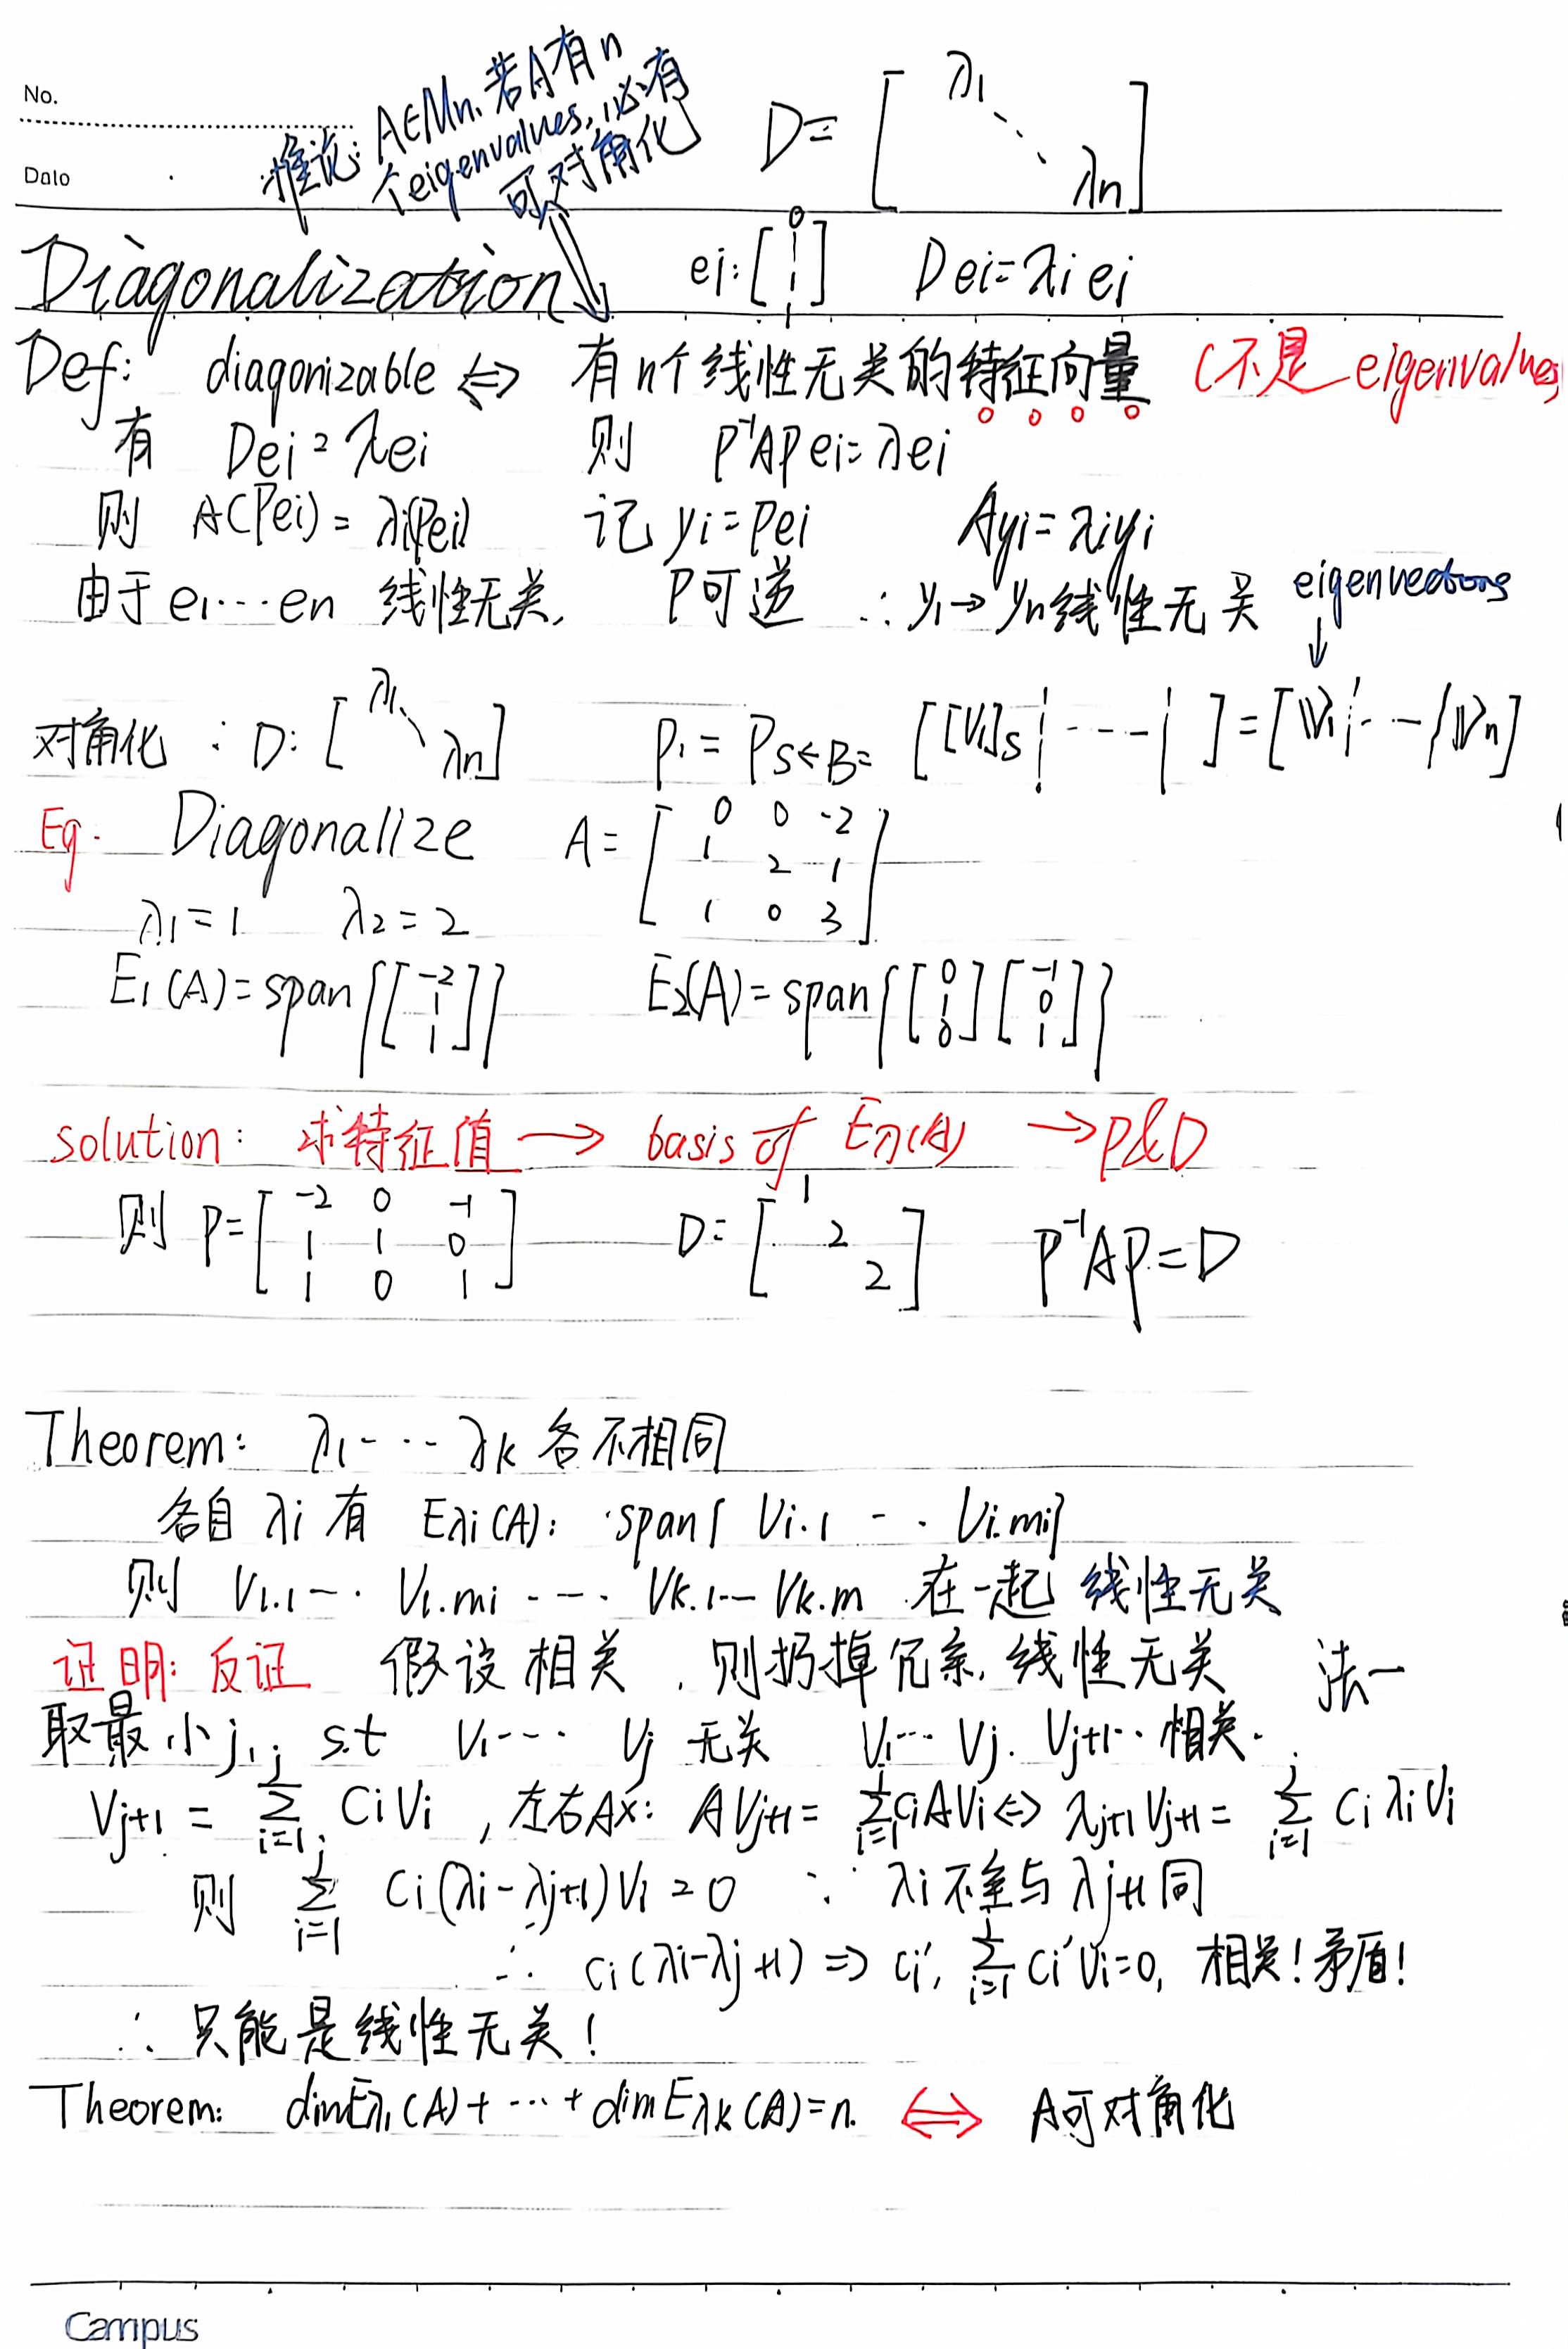 No.
Date
推论: A∈Mn. 若A有n
个eigenvalues, 必有
可对角化
D= [ λ1 ⋱ λn ]
Diagonalization
ei: [ 0 ⋮ 1 ⋮ ] Dei=λiei
Def: diagonizable ⇔ 有n个线性无关的特征向量 (不是eigenvalues)
有 Dei=λei 则 P⁻¹APei=λei
则 A(Pei)=λi(Pei) 记 yi=Pei Ayi=λiyi
由于e1···en 线性无关, P可逆 ∴y1→yn线性无关
eigenvectors
↓
对角化: D: [ λ1 ⋱ λn ] P1 = PS←B= [[V1]S ¦ ---- ¦ ] = [V1 ¦ -- ¦ Vn]
Eg. Diagonalize A= [ 0 0 -2
1 2 1
1 0 3 ]
λ1=1 λ2=2
E1(A)=span{[ -2 1 1 ]} E2(A)=span{[ 0 1 0 ][ -1 0 1 ]}
solution: 求特征值 → basis of Eλ(A) → P&D
则 P= [ -2 0 -1
1 1 0
1 0 1 ] D= [ 1 2 2 ] P⁻¹AP=D
Theorem: λ1--··λk 各不相同
各自 λi 有 Eλi(A): span{ Vi.1 -·· Vi.mi}
则 V1.1-·· V1.mi ---· Vk.1-- Vk.m 在一起 线性无关
证明: 反证 假设相关, 则扔掉冗余, 线性无关 法一
取最小j, s.t V1---· Vj 无关 V1--· Vj. Vj+1·· 相关.
Vj+1 = ∑ʲi=1 CiVi , 左右Ax: AVj+1= ∑ʲi=1 CiAVi ⇔ λj+1Vj+1= ∑ʲi=1 CiλiVi
则 ∑ʲi=1 Ci(λi-λj+1)Vi=0 ∵ λi不全与λj+1同
∴ Ci(λi-λj+1) ⇒ Ci', ∑ʲi=1 Ci'Vi=0, 相关! 矛盾!
∴ 只能是线性无关!
Theorem: dimEλ1(A)+···+dimEλk(A)=n. ⇔ A可对角化
Campus